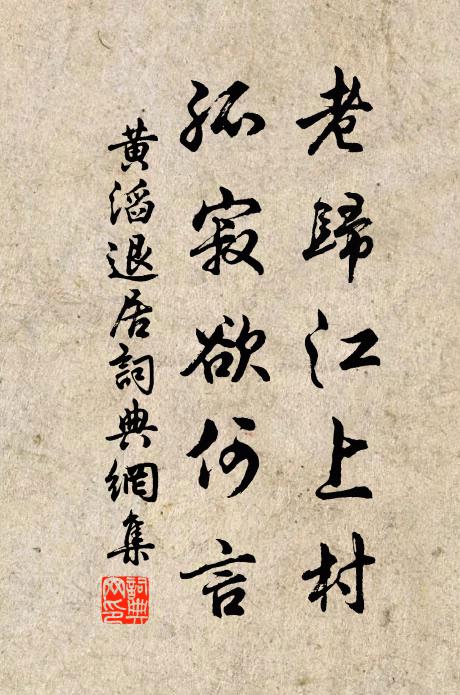 老歸江上村
孤寂欲何言
黃滔退居詞典網集
詞典網印